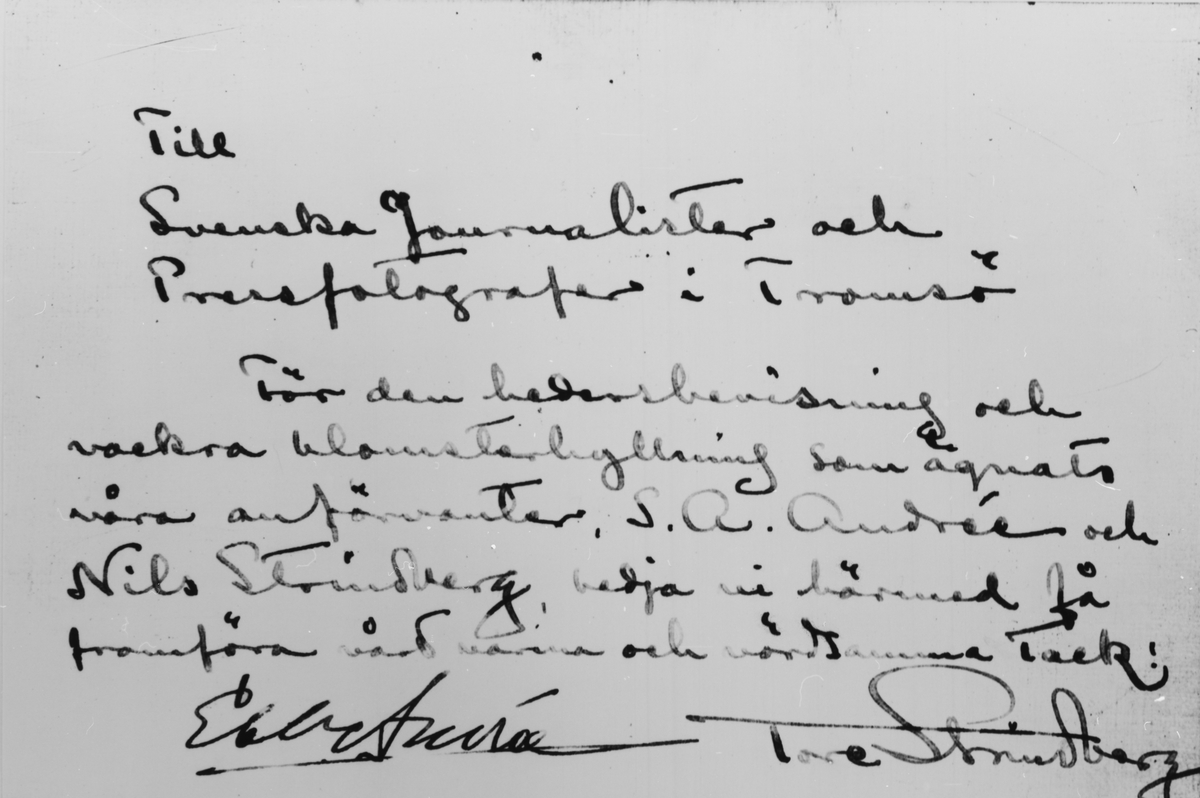 Till
Svenska Journalister och
Pressfotografer i Tromsö
För den hedersbevisning och
vackra blomsterhyllning som ägnats
våra anförvanter, S. A. Andrée och
Nils Strindberg, bedja vi härmed få
framföra vårt varma och vördsamma Tack!
Tore Strindberg